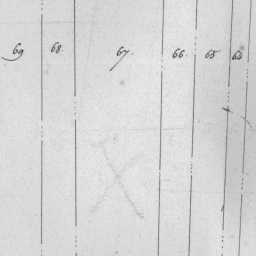 69 68. 67. 66. 65 63